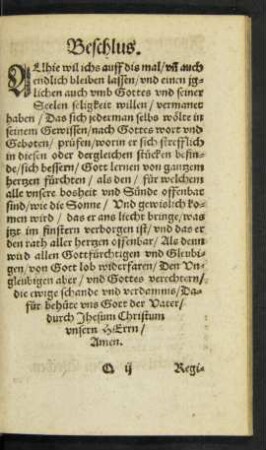 Beschlus.
ALhie wil ichs auff dis mal/ vñ auch
endlich bleiben lassen/ vnd einen jg-
lichen auch vmb Gottes vnd seiner
Seelen seligkeit willen/ vermanet
haben/ Das sich jederman selbs wölte in
seinem Gewissen/ nach Gottes wort vnd
Geboten/ prüfen/ worin er sich strefflich
in diesen oder dergleichen stücken befin-
de/ sich bessern/ Gott lernen von gantzem
hertzen fürchten/ als den/ für welchem
alle vnsere bosheit vnd Sünde offenbat
sind/ wie die Sonne/ Vnd gewislich ko-
men wird/ das er ans liecht bringe/ was
jtzt im finstern verborgen ist/ vnd das er
den rath aller hertzen offenbar/ Als denn
wird allen Gottfürchtigen vnd Gleubi-
gen/ von Gott lob widerfaren/ Den Vn-
gleubigen aber/ vnd Gottes verechtern/
die ewige schande vnd verdamnis/ Da-
für behüte vns Gott der Vater/
durch Jhesum Christum
vnsern HErrn/
Amen.
Q ij Regi-